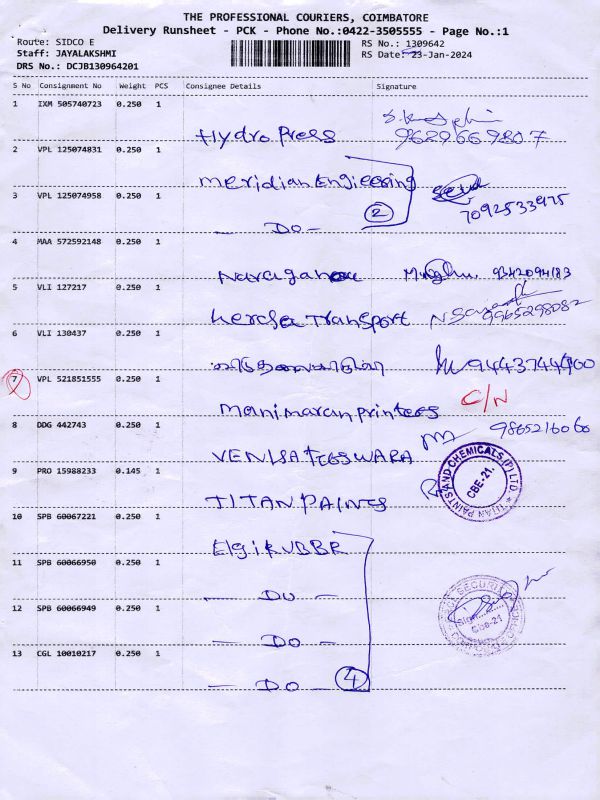 THE PROFESSIONAL COURIERS, COIMBATORE
Delivery Runsheet - PCK - Phone No.:0422-3505555 - Page No.:1
Route: SIDCO E
RS No.: 1309642
Staff: JAYALAKSHMI
RS Date: 23-Jan-2024
DRS No.: DCJB130964201
S No Consignment No Weight PCS Consignee Details Signature
1 IXM 505740723 0.250 1
Hydro Press 9629669807
2 VPL 125074831 0.250 1
Meridian Engieering
3 VPL 125074958 0.250 1
2 7092533975
- DO -
4 MAA 572592148 0.250 1
9342094183
5 VLI 127217 0.250 1
Transport 9965298082
6 VLI 130437 0.250 1
9443744400
7 VPL 521851555 0.250 1
Manimaran printers C/N
8 DDG 442743 0.250 1
9865216060
VENKATESWARA
9 PRO 15988233 0.145 1
TITAN PAINTS AND CHEMICALS (P) LTD
CBE-21.
TITAN PAINTS
10 SPB 60067221 0.250 1
Elgi RUBBR
11 SPB 60066950 0.250 1
- DO -
12 SPB 60066949 0.250 1
SECURITY
Sign
CBE-21
- DO -
13 CGL 10010217 0.250 1
- DO - 4